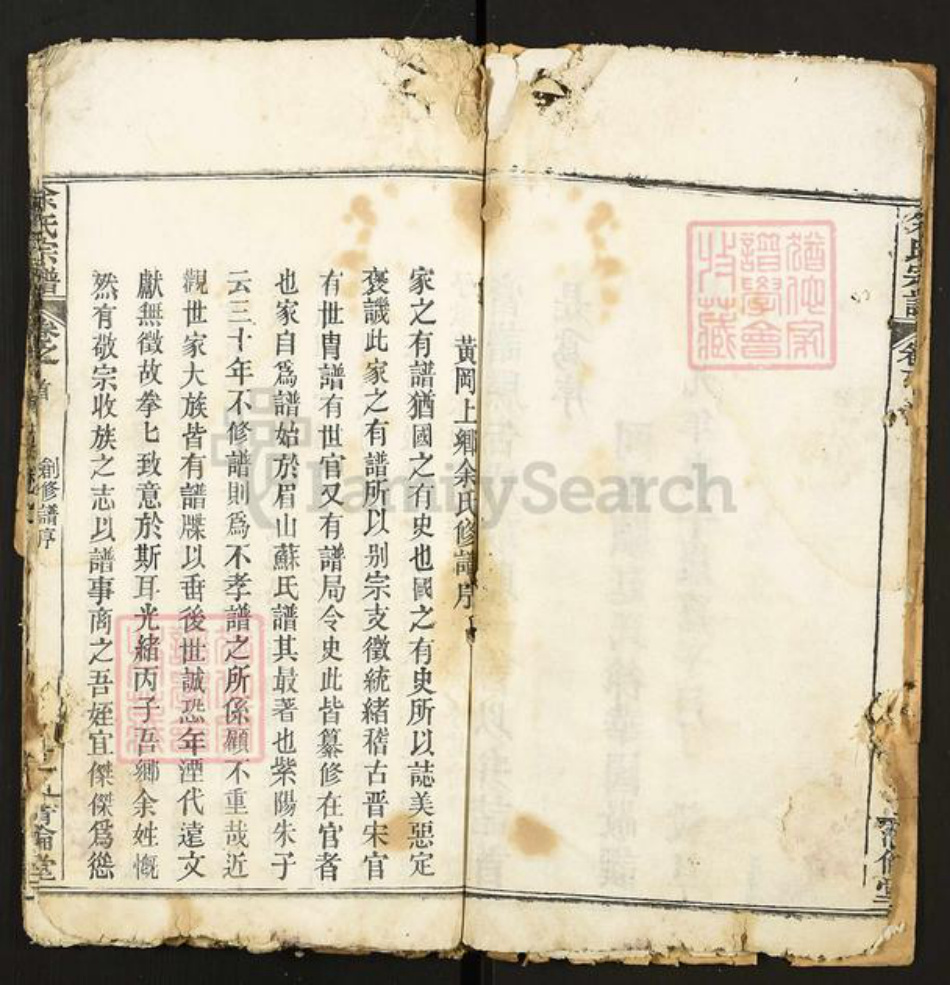 余氏宗譜
卷首
猶他家
譜學會
收藏
黃岡上鄉余氏修譜序
家之有譜猶國之有史也國之有史所以誌美惡定
褒譏此家之有譜所以别宗支徵統緒稽古晋宋官
有世胄譜有世官又有譜局令史此皆纂修在官者
也家自為譜始於眉山蘇氏譜其最著也紫陽朱子
云三十年不修譜則為不孝譜之所係顧不重哉近
觀世家大族皆有譜牒以垂後世誠恐年湮代遠文
獻無徵故拳七致意於斯耳光緒丙子吾鄉余姓慨
然有敬宗收族之志以譜事商之吾姪宜傑傑為慫
余氏宗譜
卷之首
創修譜序
一
FamilySearch